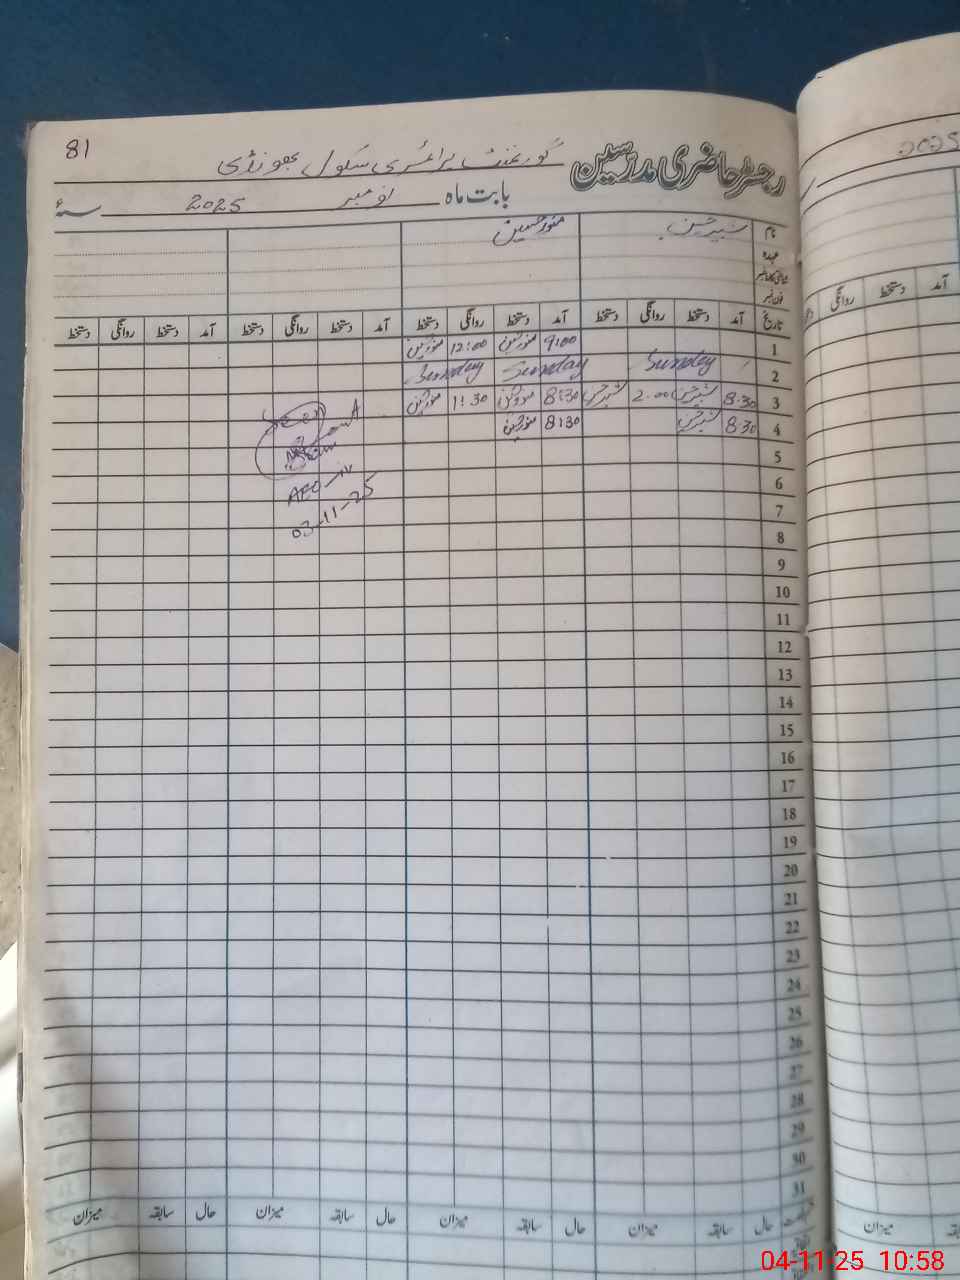 81
رجسٹر حاضری مدرسین گورنمنٹ پرائمری سکول بھونڈی
بابت ماہ نومبر 2025 سنۂ
2025
نام شبیر حسن منور حسین
عہدہ
فون نمبر
تاریخ آمد دستخط روانگی دستخط آمد دستخط روانگی دستخط آمد دستخط روانگی دستخط آمد دستخط روانگی دستخط
آمد دستخط روانگی
1 9:00 منور حسین 12:00 منور حسین
2 Sunday Sunday Sunday
3 8:30 شبیر حسن 2:00 شبیر حسن 8:30 منور حسین 1:30 منور حسین
4 8:30 شبیر حسن 8:30 منور حسین
5
6
7
8
9
10
11
12
13
14
15
16
17
18
19
20
21
22
23
24
25
26
27
28
29
30
31
AEO-IV
03-11-25
حال سابقہ میزان حال سابقہ میزان حال سابقہ میزان حال سابقہ میزان
میزان
04-11-25 10:58